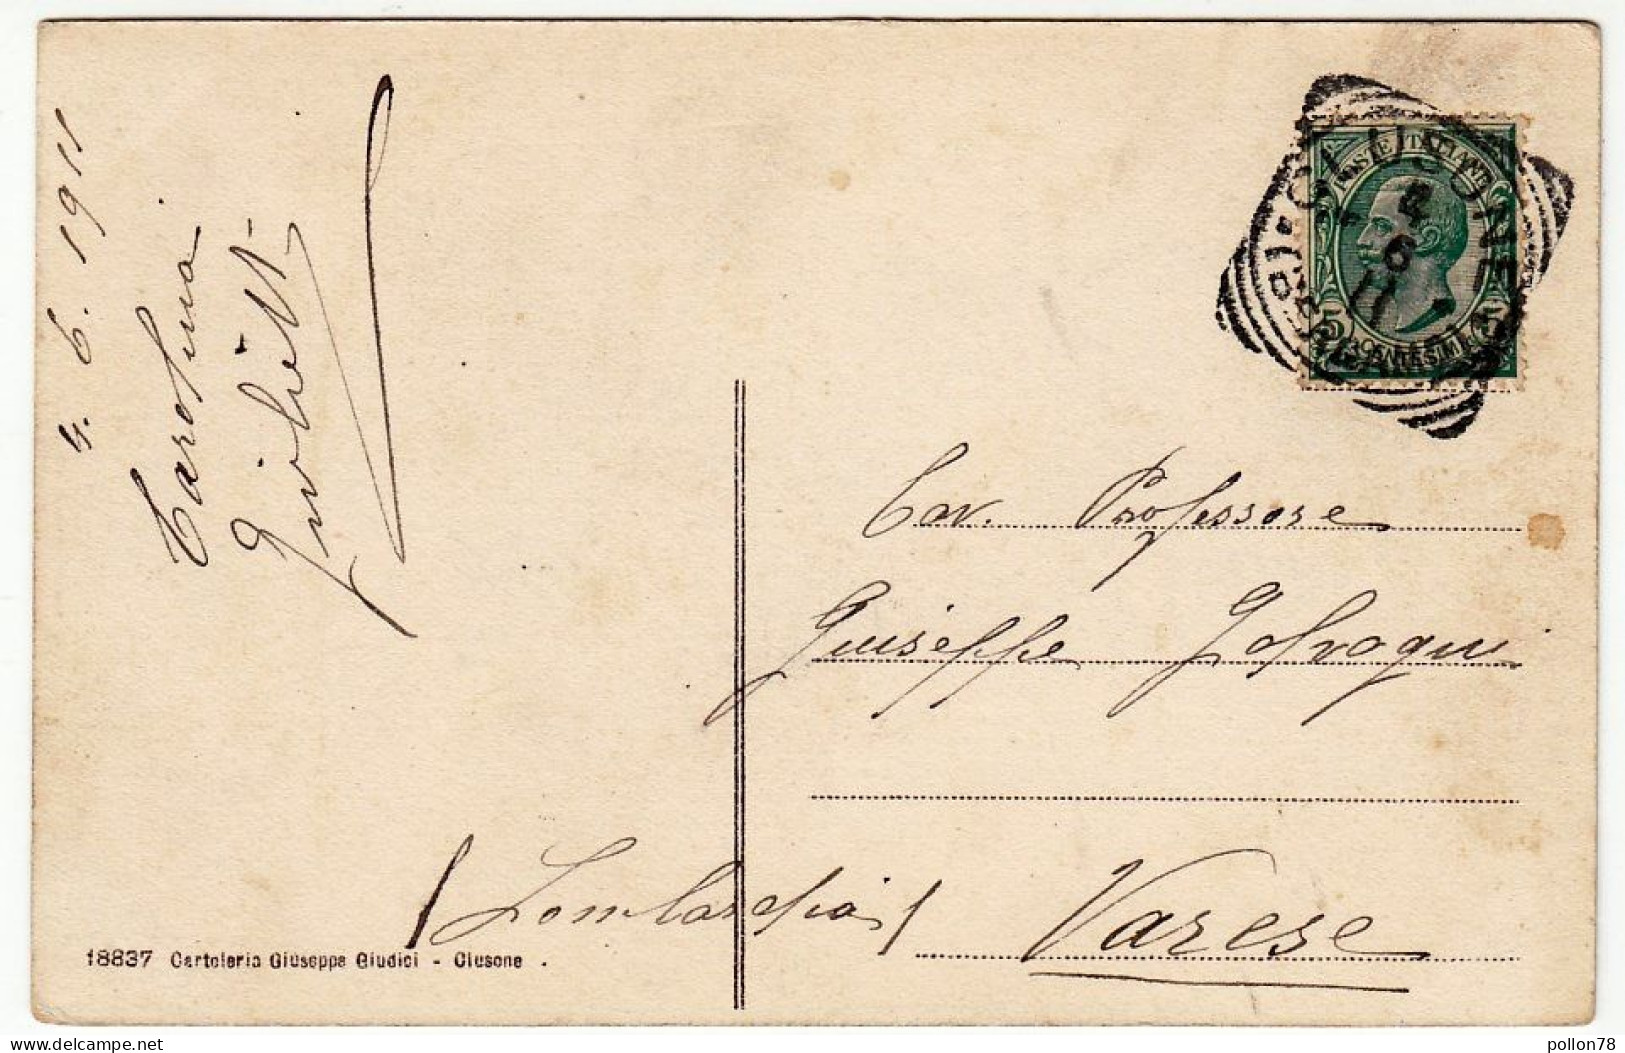 4. 6. 1911
Carolina
POSTE ITALIANE
CLUSONE
4
6
11
BERGAMO
5 CENTESIMI 5
Cav. Professore
Giuseppe
(Lombardia)
Varese
18837 Cartoleria Giuseppe Giudici - Clusone .
delcampe.net
pollon78